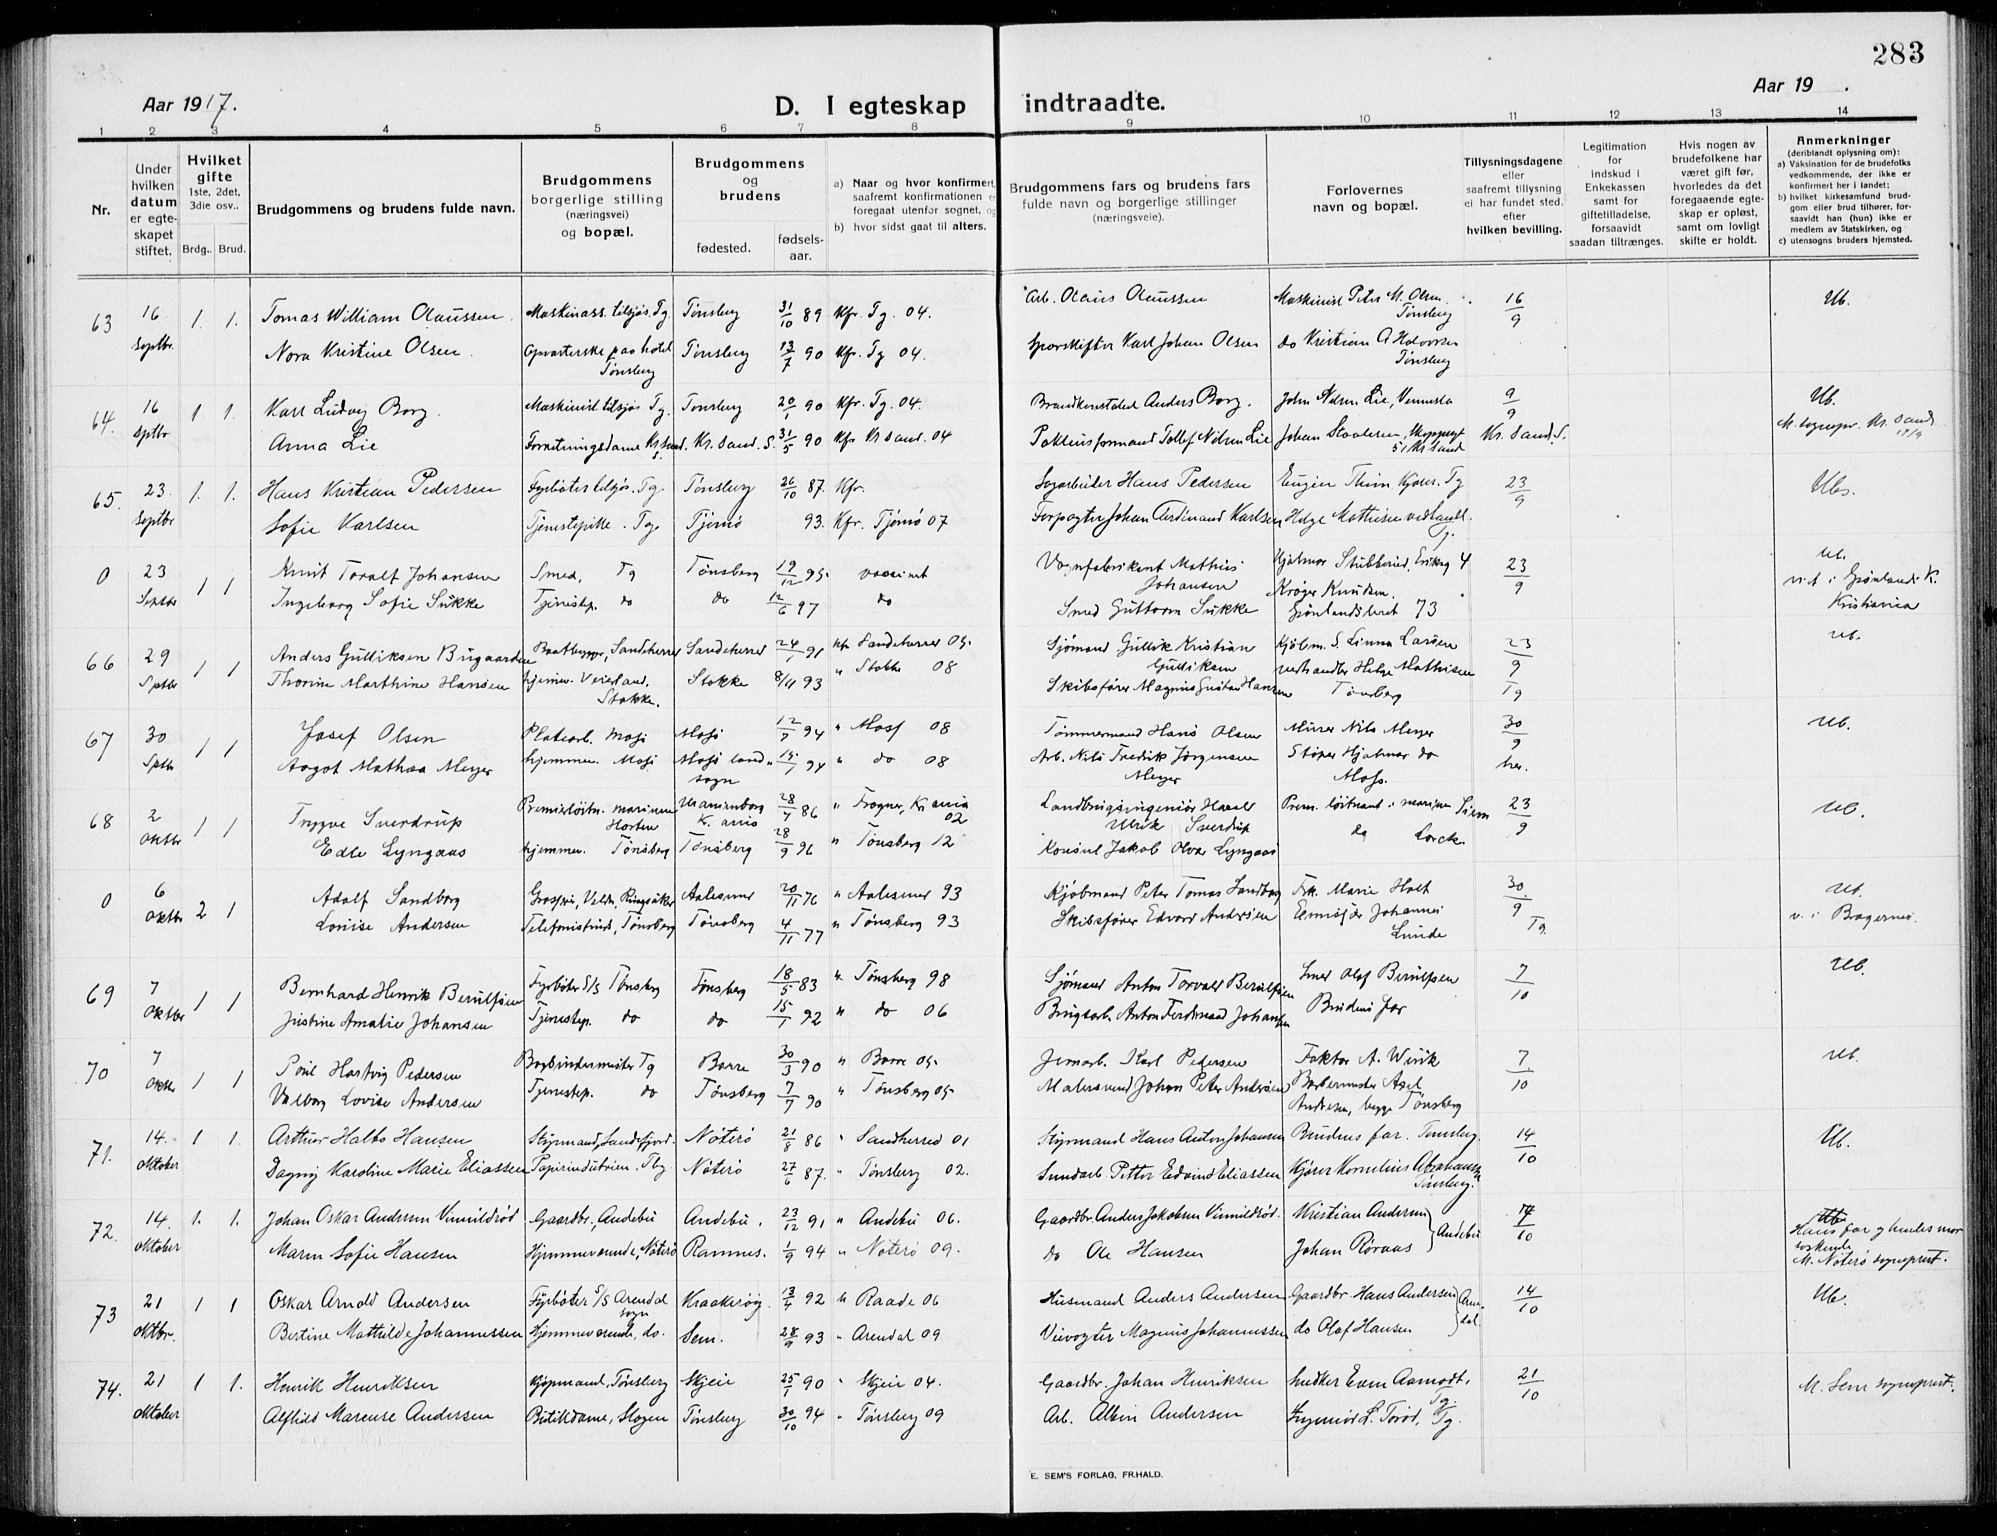 283
Aar 1917.
D. I egteskap indtraadte.
Aar 19 .
1 2 3 4 5 6 7 8 9 10 11 12 13 14
Nr.
Under hvilken datum er egte-skapet stiftet.
Hvilket gifte
1ste, 2det, 3die osv..
Brdg.. Brud.
Brudgommens og brudens fulde navn.
Brudgommens borgerlige stilling (næringsvei) og bopæl.
Brudgommens og brudens
fødested. fødsels-aar.
a) Naar og hvor konfirmert,
saafremt konfirmationen
foregaat utenfor sognet,
b) hvor sidst gaat til alters.
Brudgommens fars og brudens fars
fulde navn og borgerlige stillinger
(næringsveie).
Forlovernes
navn og bopæl.
Tillysningsdagene
eller
saafremt tillysning
ei har fundet sted,
efter
hvilken bevilling.
Legitimation
for
indskud i
Enkekassen
samt for
giftetilladelse,
forsaavidt
saadan tiltrænges.
Hvis nogen av
brudefolkene har
været gift før,
hvorledes da det
foregaaende egte-
skap er opløst,
samt om lovligt
skifte er holdt.
Anmerkninger
(deriblandt oplysning om):
a) Vaksination for de brudefolks
vedkommende, der ikke er
konfirmert her i landet;
b) hvilket kirkesamfund brud-
gom eller brud tilhører, for-
saavidt han (hun) ikke er
medlem av Statskirken, og
c) utensogns bruders hjemsted.
63 16 Septbr. 1. 1. Tomas William Olaussen. Maskinass. tilsjøs. Tg. Tønsberg 31/10 89 Kfr. Tg. 04. Arb. Olaus Olaussen Maskinist Peter M. Olsen. Tønsberg 16/9 Ub.
Nora Kristine Olsen. Opvarterske paa hotel Tønsberg Tønsberg 13/7 90 Kfr. Tg 04. Sporskifter Karl Johan Olsen do Kristian A Halvorsen Tønsberg
64. 16 Sptbr 1 1. Karl Ludvig Borg. Maskinist tilsjøs Tg. Tønsberg 20/1 90 Kfr. Tg. 04. Brandkonstabel Anders Borg. John Nilsen Lie, Vennesla 9/9 Ub.
Anna Lie Forretningsdame Kr.sand. Kr. sand. S. 31/5 90 Kfr Kr sand. 04 Pakhusformand Tollef Nilsen Lie Johan Kr. sand. S. M. sognepr. Kr. sand
65. 23. Septbr 1. 1. Hans Kristian Pedersen Fyrbøter tilsjøs. Tg. Tønsberg 26/10 87. Kfr. Sagarbeider Hans Pedersen Eugen Thim Kjører. Tg 23/9 Ub.
Sofie Karlsen Tjenestepike. Tg. Tjømø 93. Kfr. Tjømø 07 Forpagter Johan Ferdinand Karlsen Helge Mathisen vedhandl. Tg.
0 23 Septbr 1 1 Knut Toralf Johansen Smed, Tg Tønsberg 19/12 95. vaccinert Vognfabrikant Mathias Johansen Hjalmar Stubberud, 4 23/9 Ub. vi. i Grønlands K. Kristiania
Ingeborg Sofie Sukke Tjenestep. do do 12/6 97 do Smed Guttorm Sukke Krøger Knudsen. Grønlandsleret 73
66 29 Sptbr 1 1 Anders Gulliksen Bugaarden Baatbygger, Sandeherred Sandeherred 24/7 91 kfr Sandeherred 05. Sjømand Gullik Kristian Gulliksen Kjøbm. S. Linnu Larsen 23/9 Tg Ub.
Thorine Marthine Hansen hjemme. Veierland, Stokke. Stokke 8/11 93 " Stokke 08 Skibsfører Magnus Gustav Hansen vedhandler Helge Mathisen Tønsberg
67 30 Sptbr 1 1 Josef Olsen Platearb. Moss Moss 12/9 94 " Moss 08 Tømmermand Hans Olsen Murer Nils Meyer 30/9 her. Ub.
Aagot Mathea Meyer hjemmev. Moss Moss landsogn 15/7 94 " do 08 Arb. Nils Fredrik Jørgensen Meyer Støper Hjalmar do Moss.
68 2 Oktbr 1 1 Trygve Sverdrup Premierløitn. marinen Horten Uranienborg K.ania 28/7 86 " Frogner, Kr.ania 02 Landbrugsingeniør Harald Ulrik Sverdrup Prem. løitnant i marinen Siem 23/9 Ub.
Edle Lyngaas hjemmev. Tønsberg Tønsberg 28/9 96 " Tønsberg 12 Konsul Jakob Olvar Lyngaas do Lorck.
0 6 Oktbr 2 1 Adolf Sandborg Ringsaker Aalesund 20/11 76 " Aalesund 93 Kjøbmand Peter Tomas Sandborg Frk. Marie Holt 30/9 Tg. Ub. v. i Bragernes.
Louise Andersen Telefonistinde, Tønsberg Tønsberg 4/11 77 " Tønsberg 93 Skibsfører Edvard Andersen Johannes Lunde
69 7 Oktbr 1 1 Bernhard Henrik Berulfsen Fyrbøter S/S Tønsberg Tønsberg 18/5 83 " Tønsberg 98 Sjømand Anton Torvald Berulfsen Smed Olaf Berulfsen 7/10 Ub.
Justine Amalie Johansen Tjenestep. do do 15/1 92 " do 06 Brugsarb. Anton Ferdinand Johansen Brudens far
70 7 Oktbr 1 1 Poul Hartvig Pedersen Bogbindermester Tg Borre 30/3 90 " Borre 05. Jernarb. Karl Pedersen Faktor A. Wirik 7/10 Ub.
Valborg Lovise Andersen Tjenestep. do Tønsberg 7/7 90 " Tønsberg 05 Malersvend Johan Peter Andersen Barbermester Axel Andresen, begge Tønsberg
71. 14. Oktober 1 1. Arthur Halbo Hansen Styrmand, Sandefjord. Nøterø 21/8 86 " Sandherred 01 Styrmand Hans Anton Johansen Brudens far. Tønsberg. 14/10 Ub.
Dagny Karoline Marie Eliassen Papirindustrien. Tbg Nøterø 27/6 87. " Tønsberg 02. Sundarb. Petter Edvind Eliassen Kjører Kornelius Abrahamsen Tønsberg.
72. 14. Oktober 1. 1. Johan Oskar Andersen Vinnildrød Gaardbr., Andebu Andebu. 23/12 91 " Andebu 06. Gaardbr. Anders Jakobsen Vinnildsrød. Kristian Andersen 14/10 Ub. Hans far og hendes mor søskende
Maren Sofie Hansen Hjemmeværende, Nøterø Ramnes. 1/9 94 " Nøterø 09. do Ole Hansen Johan Røraas Andebu M. Nøterø sogneprest.
73 21 Oktbr. 1 1 Oskar Arnold Andersen Fyrbøter S/S Arendal sogn Kraakerøy. 13/4 92 " Raade 06 Husmand Anders Andersen Gaardbr. Hans Andersen Arendal. 14/10 Ub.
Bertine Mathilde Johannessen Hjemmeværende, do. Sem. 28/9 93 " Arendal 09 Veivogter Magnus Johannessen do Olaf Hansen
74. 21 Oktober 1 1. Henrik Henriksen Kjøpmand, Tønsberg Skjeie 25/1 90 " Skjeie 04. Gaardbr. Johan Henriksen Snedker Even Aamodt, Tg. 21/10 M. Sem sogneprest.
Alfhild Marense Andersen Butikdame, Slagen Tønsberg 30/10 94 " Tønsberg 09 Arb. Albin Andersen Ingeniør L. Torød, Tg.
E. SEM'S FORLAG, FR.HALD.